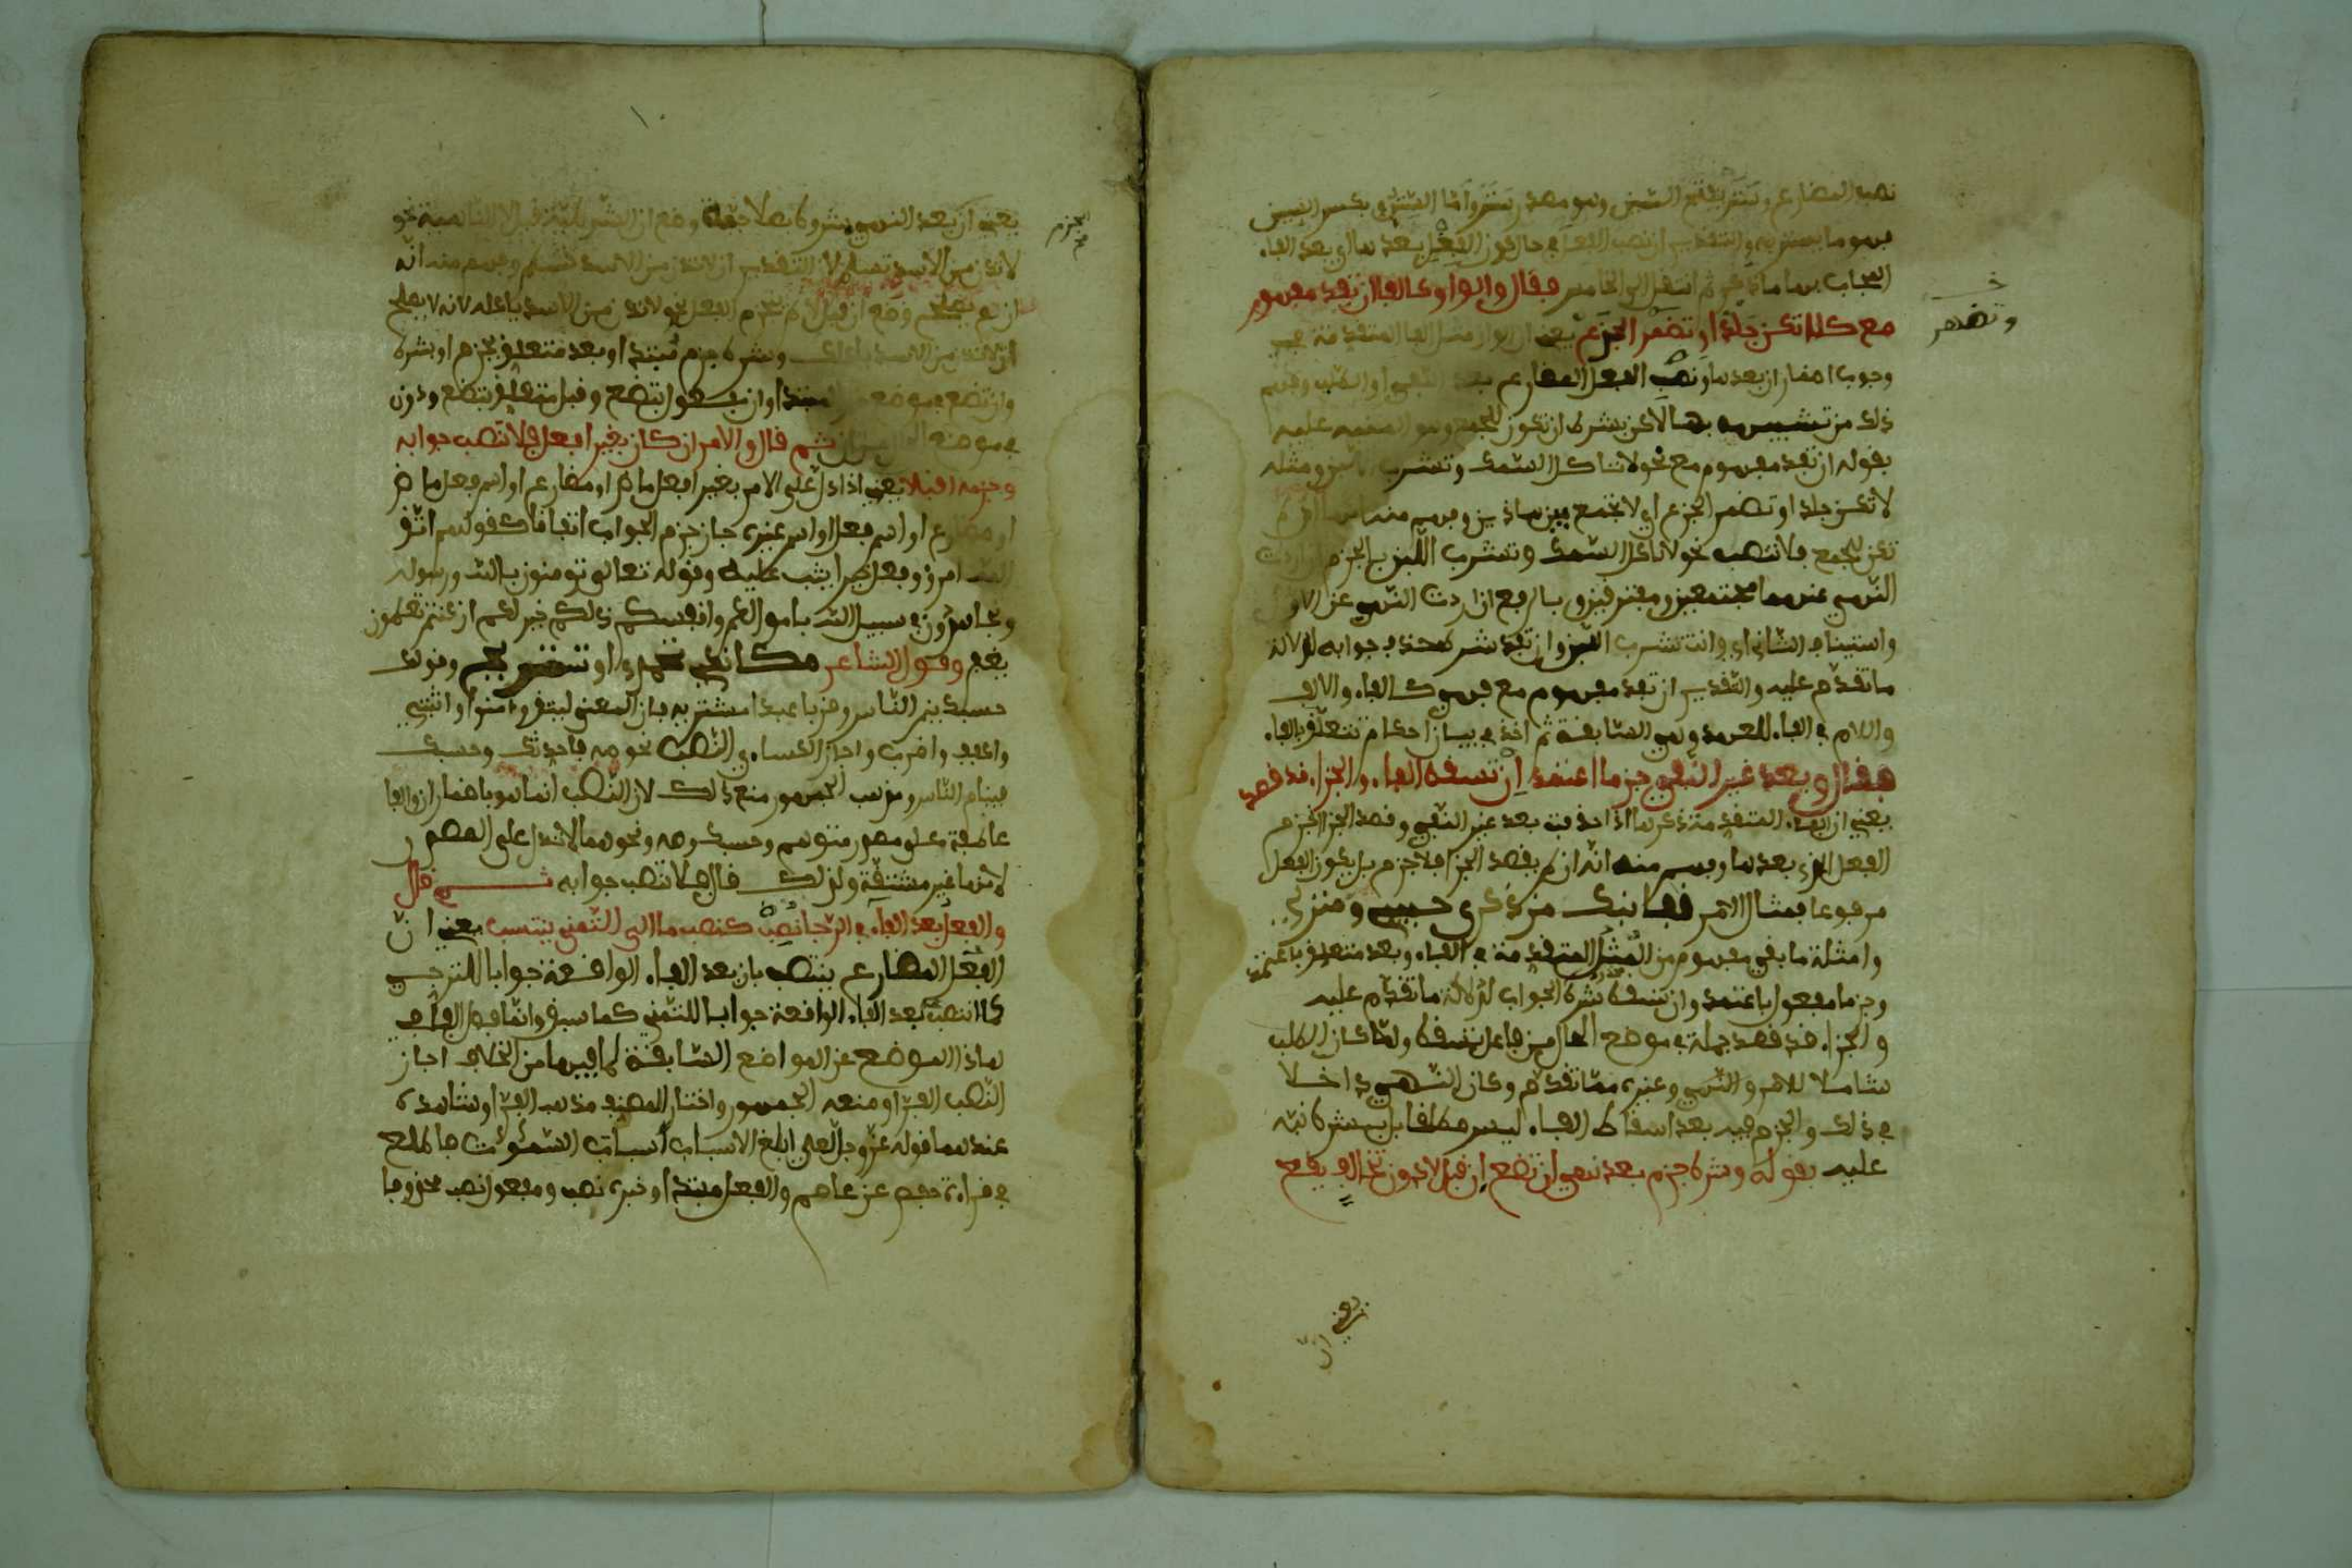 نصب المضارع وستر بفتح السين وهو مصدر ستر واما الستر بكسر السين
فهو ما يستر به والتقدير ان نصب الفعل في حال كون الفعل بعدها اي بعد الفاء
المجاب بها ثم انتقل الى الخامس فقال والواو كالفا ان تفد مفهوم
مع كلا تكن جلدا وتضمر الجزع يعني ان الواو مثل الفا المتقدمة في
وتضمر
وجوب اضمار ان بعدها ونصب الفعل المضارع بعد النفي او الطلب وفهم
ذلك من تشبيهه بها لاكن بشرط ان تكون للجمع وهو المنبه عليه
بقوله ان تفد مفهوم مع نحو لا تاكل السمك وتشرب اللبن ومثله
لا تكن جلدا وتضمر الجزع اي لا تجمع بين هاذين وفهم منه انها ان لم
تكن للجمع فلا تنصب نحو لا تاكل السمك وتشرب اللبن بالجزم ان اردت
النهي عنهما مجتمعين ومفترقين وبالرفع ان اردت النهي عن الاول
واستيناف الثاني اي وانت تشرب اللبن وان تفد شرط حذف جوابه لدلالة
ما تقدم عليه والتقدير ان تفد مفهوم مع فهي كالفاء والالف
واللام في الفاء للعهد وهي السابقة ثم اخذ في بيان احكام تتعلق بالفاء
فقال وبعد غير النفي جزما اعتمد ان تسقط الفاء والجزاء قد قصد
يعني ان الفاء المتقدمة ذكرها اذا حذفت بعد غير النفي وقصد الجزا انجزم
الفعل الذي بعدها وفهم منه انه ان لم يقصد الجزا فلا جزم بل يكون الفعل
مرفوعا فمثال الامر قفا نبك من ذكرى حبيب ومنزل
وامثلة ما بقي مفهوم من المثل المتقدمة في الفاء وبعد متعلق باعتمد
وجزما مفعول باعتمد وان تسقط شرط الجواب لدلالة ما تقدم عليه
والجزاء قد قصد جملة في موضع الحال من فاعل تسقط ولما كان الطلب
شاملا للامر والنهي وغيره مما تقدم وكان النهي داخلا
في ذلك والجزم فيه بعد اسقاط الفاء ليس مطلقا بل بشرط نبه
عليه بقوله وشرط جزم بعد نهي ان تضع ان قبل لا دون تخالف يقع
يعني ان
يعني ان بعد النهي بشرط صلاحية وضع ان الشرطية قبل لا الناهية نحو
الجزم
لا تدن من الاسد تسلم لان التقدير ان لا تدن من الاسد تسلم وفهم منه انه
ان لم يصلح وضع ان قبل لا لم يجزم الفعل نحو لا تدن من الاسد ياكلك لانه لا يصلح
ان لا تدن من الاسد ياكلك وشرط جزم مبتدا وبعد متعلق بجزم او بشرط
وان تضع في موضع خبر المبتدا وان مفعول بتضع وقبل متعلق بتضع ودون
في موضع الحال من ان ثم قال والامر ان كان بغير افعل فلا تنصب جوابه
وجزمه اقبلا يعني اذا دل على الامر بغير افعل ماض او مضارع او اسم فعل ماض
او مضارع او اسم فعل او اسم غيره جاز جزم الجواب اتفاقا كقولهم اتقى
الله امرؤ وفعل خيرا يثب عليه وقوله تعالى تومنون بالله ورسوله
وتجاهدون في سبيل الله باموالكم وانفسكم ذلكم خير لكم ان كنتم تعلمون
يغفر وقول الشاعر مكانك تحمدي او تستريحي وقولك
حسبك ينم الناس
واكفف واضرب واجاز الكساءي النصب نحو صه فاحدثك وحسبك
فينام الناس ومذهب الجمهور منع ذلك لان النصب انما هو باضمار ان والفا
عاطفة على مصدر متوهم وحسبك وصه ونحوهما لا تدل على المصدر
لانها غير مشتقة ولذلك قال فلا تنصب جوابه ثم قال
والفعل بعد الفاء في الرجا نصب كنصب ما الى التمني ينتسب يعني ان
الفعل المضارع ينتصب بان بعد الفاء الواقعة جوابا للترجي
كما انتصب بعد الفاء الواقعة جوابا للتمني كما سبق وانما فصل الفاء في
هاذا الموضع عن المواضع السابقة لما فيها من الخلاف اجاز
النصب الفراء ومنعه الجمهور واختار المصنف مذهب الفرا وشاهده
عندهما قوله عز وجل لعلي ابلغ الاسباب اسباب السموات فاطلع
في قراءة حفص عن عاصم والفعل مبتدا وخبره نصب ومفعول نصب محذوفا